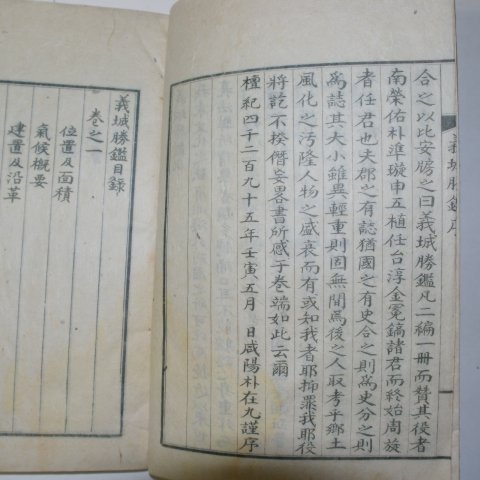 合之以比安房之曰義城勝鑑凡二編一冊而贊其役者
南榮佑朴準璇申五植任台淳金冕鎬諸君而終始周旋
者任君也夫郡之有誌猶國之有史合之則爲史分之則
爲誌其大小雖異輕重則固無間爲後之人取考乎鄉土
風化之汚隆人物之盛衰而有或知我者耶抑罪我耶役
將訖不揆僭妄畧書所感于卷端如此云爾
檀紀四千二百九十五年壬寅五月 日咸陽朴在九謹序
義城勝鑑序
義城勝鑑目錄
卷之一
位置及面積
氣候概要
建置及沿革